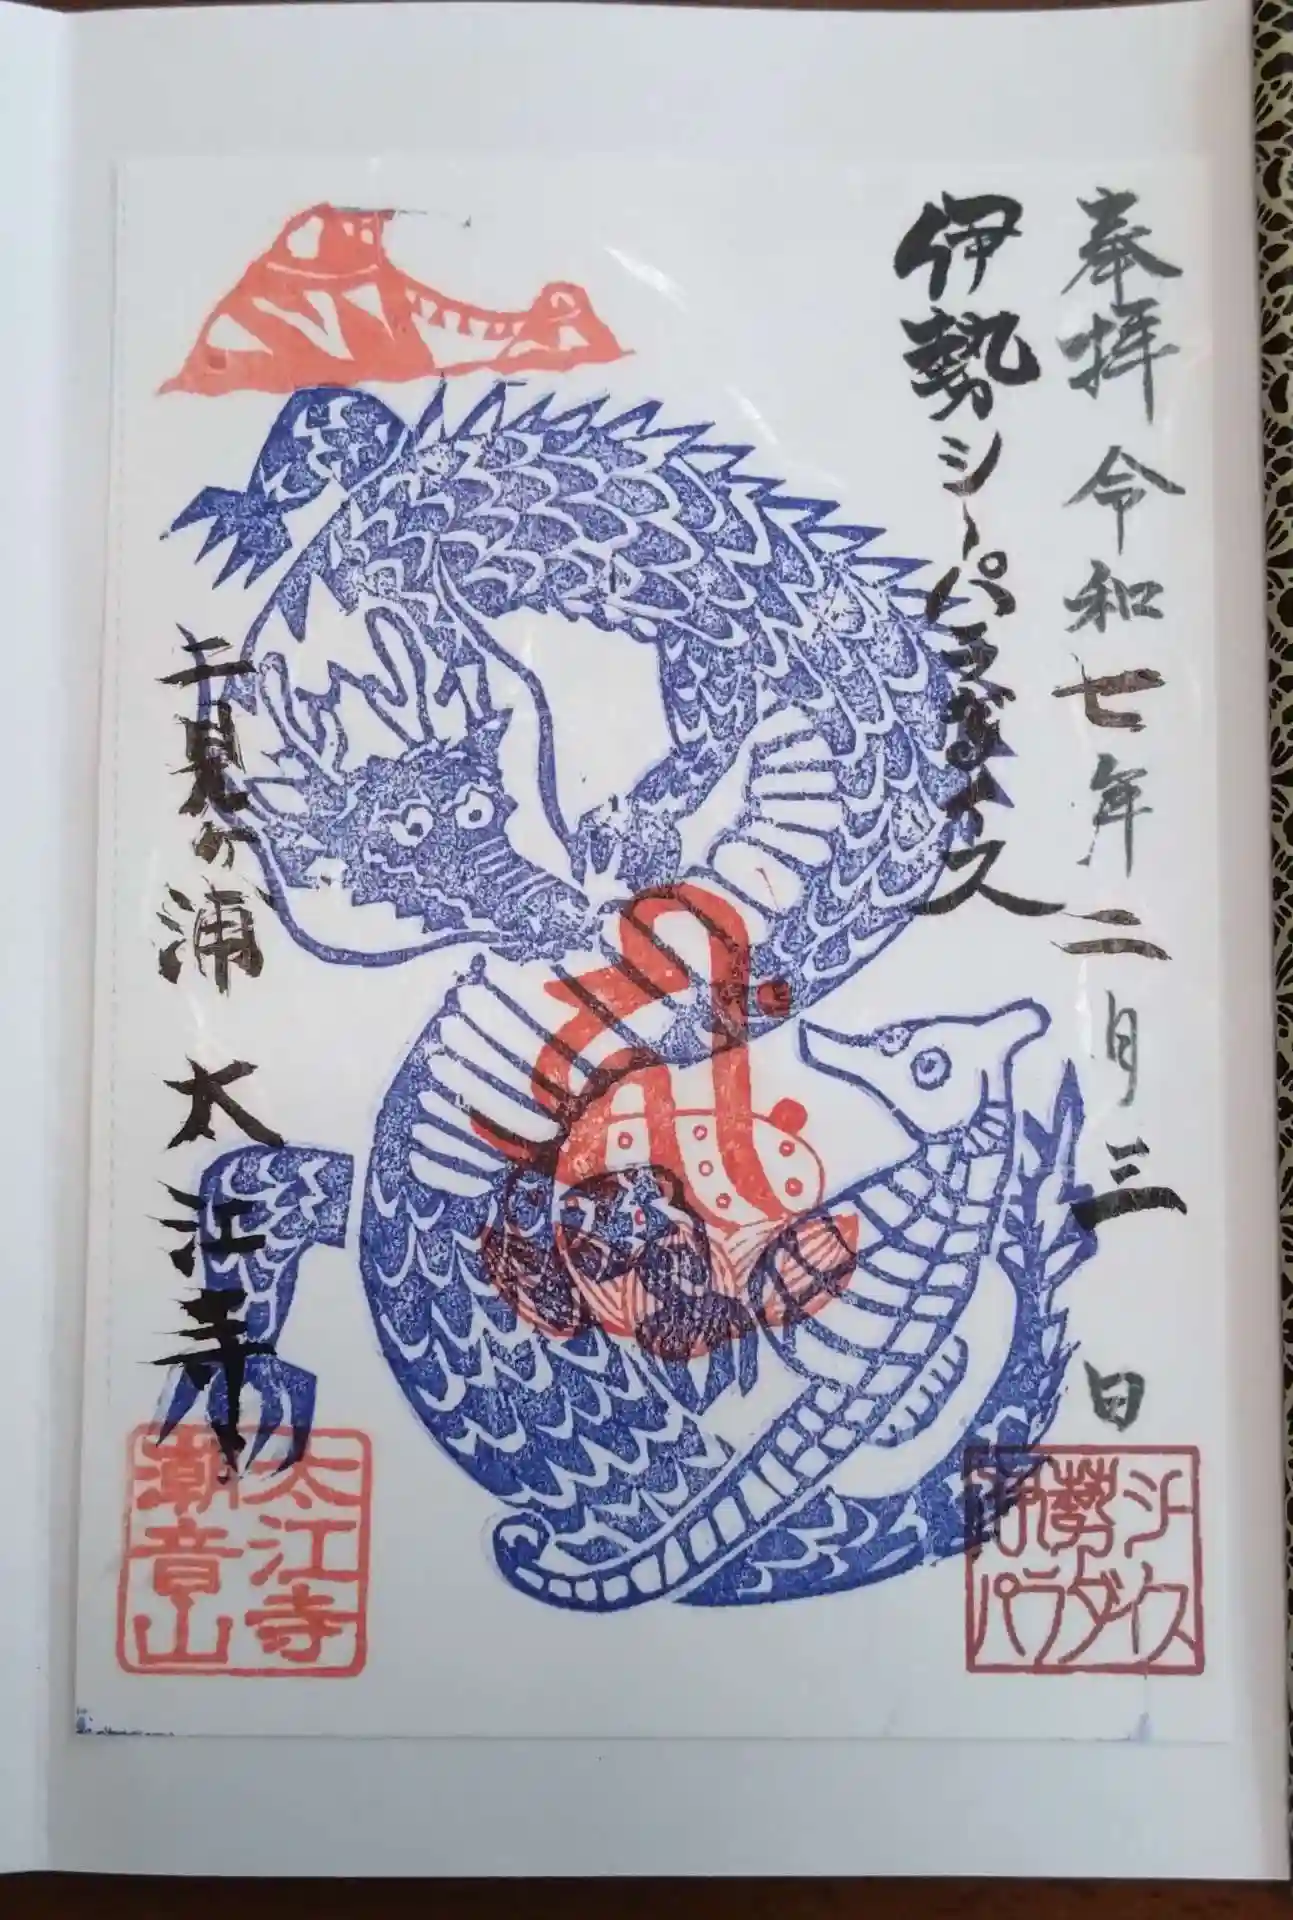 奉拝 令和七年二月三日
伊勢シーパラダイス
二見の浦 太江寺
太江寺
潮音山
伊勢シー
パラダイス